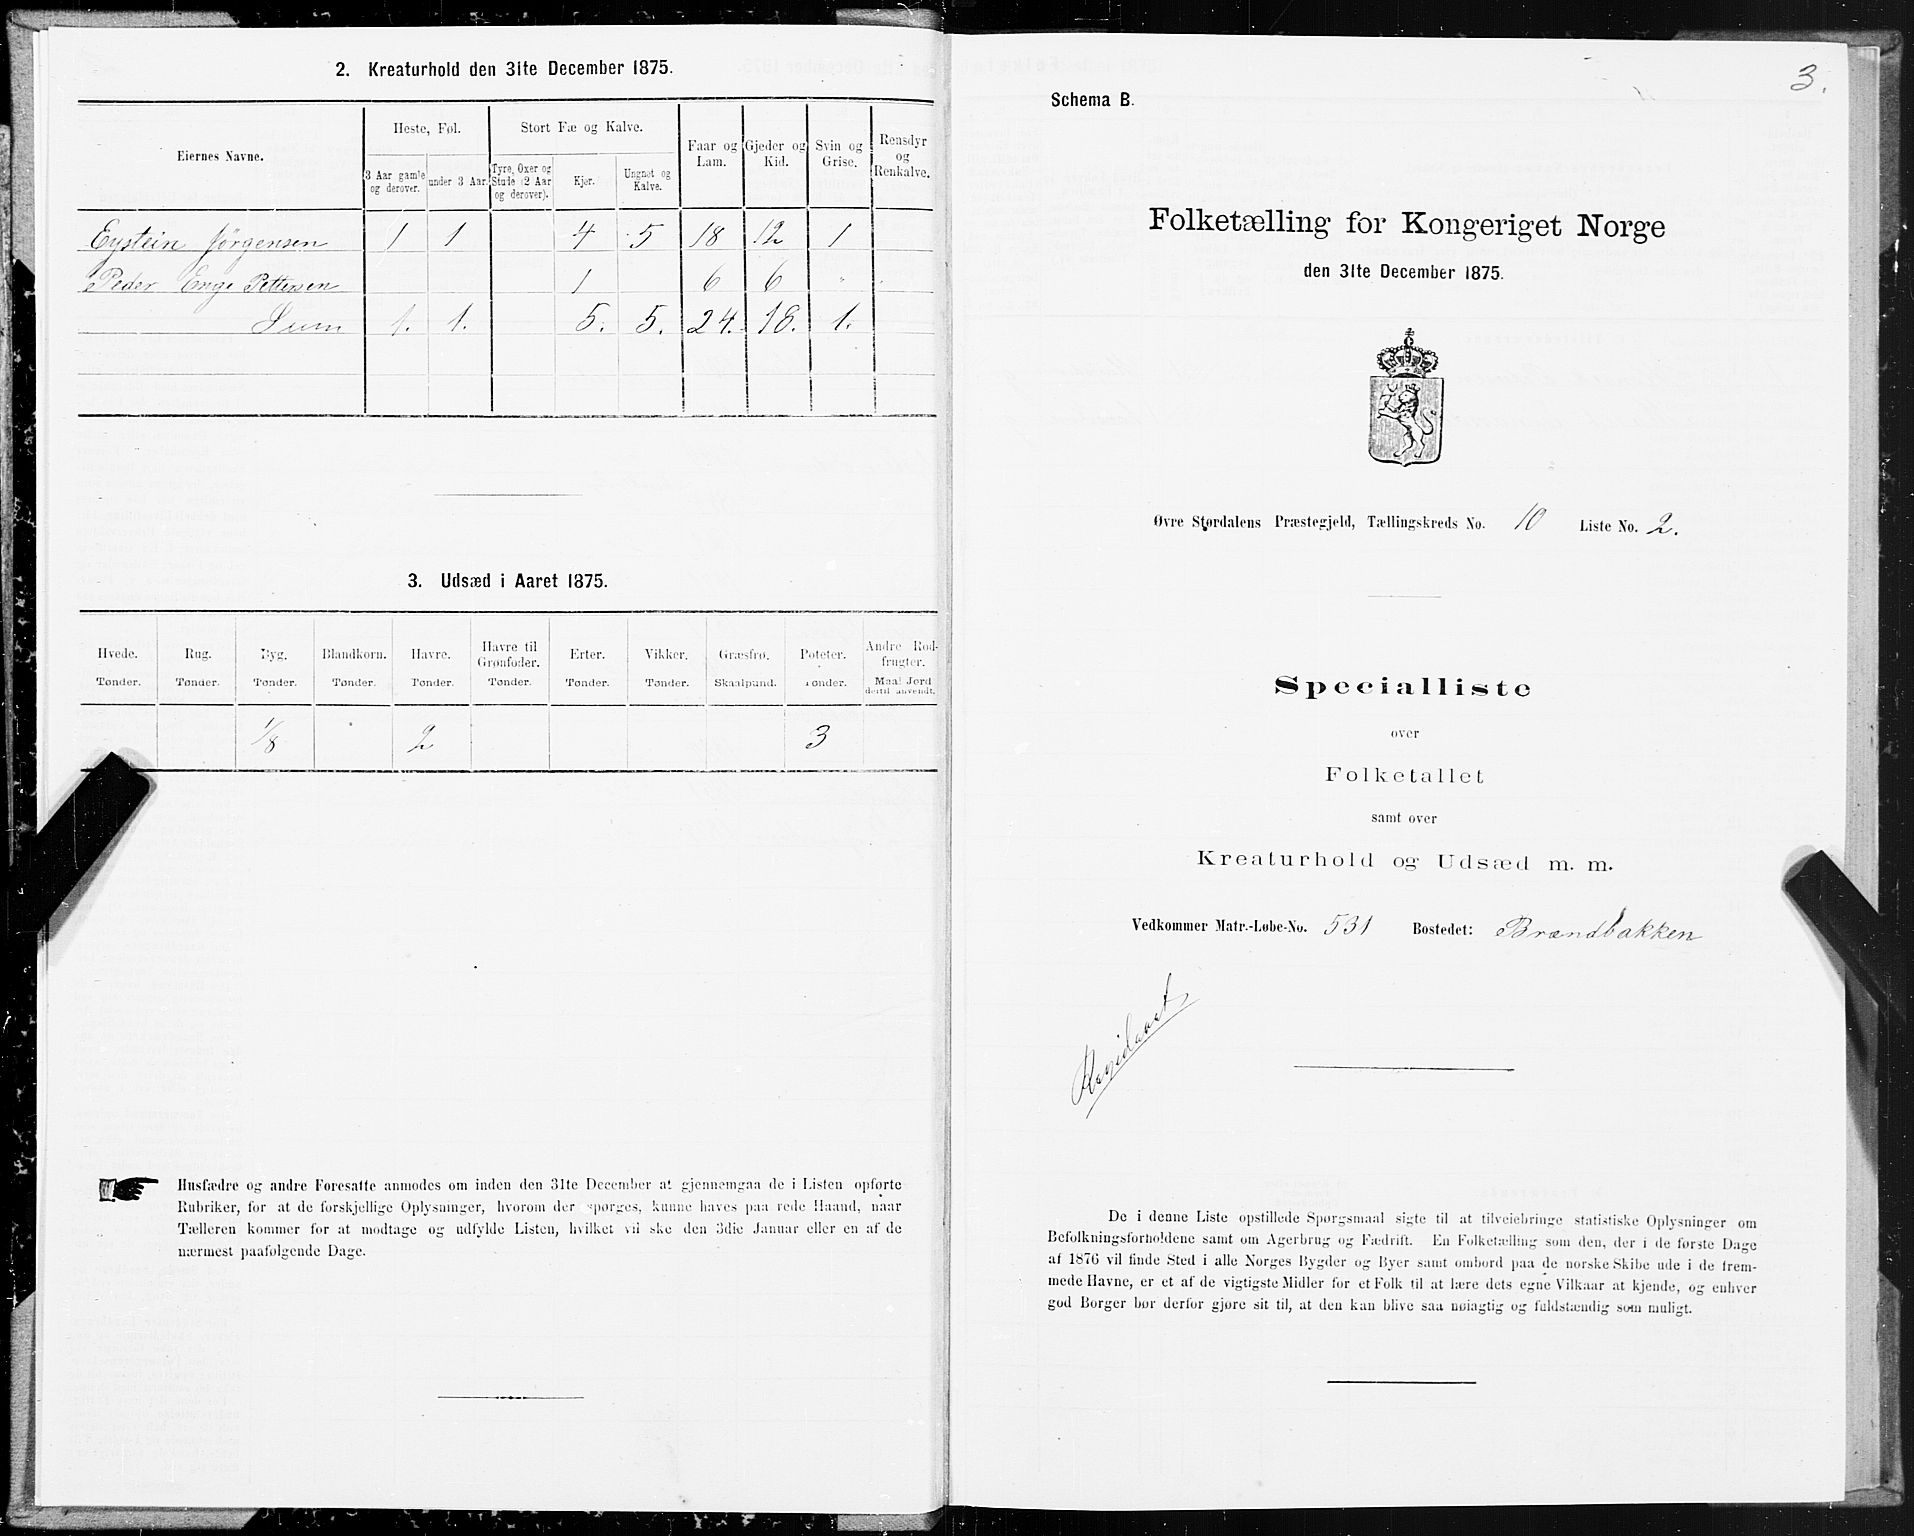 2. Kreaturhold den 31te December 1875.
Eiernes Navne.
Heste, Føl.
Stort Fæ og Kalve.
Faar og Lam.
Gjeder og Kid.
Svin og Grise.
Rensdyr og Renkalve.
3 Aar gamle og derover.
under 3 Aar.
Tyre, Oxer og Stude (2 Aar og derover).
Kjør.
Ungnøt og Kalve.
Eystein Jørgensen 1 1 4 5 18 12 1
Peder Enge Pettersen 1 6 6 "
Sum 1. 1. 5. 5. 24. 18. 1.
3. Udsæd i Aaret 1875.
Hvede. Rug. Byg. Blandkorn. Havre. Havre til Grønfoder. Erter. Vikker. Græsfrø. Poteter. Andre Rodfrugter.
Tønder. Tønder. Tønder. Tønder. Tønder. Tønder. Tønder. Tønder. Skaalpund. Tønder. Maal Jord dertil anvendt.
1/8 2 3
Husfædre og andre Foresatte anmodes om inden den 31te December at gjennemgaa de i Listen opførte
Rubriker, for at de forskjellige Oplysninger, hvorom der spørges, kunne haves paa rede Haand, naar
Tælleren kommer for at modtage og udfylde Listen, hvilket vil ske den 3die Januar eller en af de
nærmest paafølgende Dage.
3.
Schema B.
Folketælling for Kongeriget Norge
den 31te December 1875.
Øvre Størdalens Præstegjeld, Tællingskreds No. 10 Liste No. 2.
Specialliste
over
Folketallet
samt over
Kreaturhold og Udsæd m. m.
Vedkommer Matr.-Løbe-No. 531 Bostedet: Brændbakken
De i denne Liste opstillede Spørgsmaal sigte til at tilveiebringe statistiske Oplysninger om
Befolkningsforholdene samt om Agerbrug og Fædrift. En Folketælling som den, der i de første Dage
af 1876 vil finde Sted i alle Norges Bygder og Byer samt ombord paa de norske Skibe ude i de frem-
mede Havne, er et af de vigtigste Midler for et Folk til at lære dets egne Vilkaar at kjende, og enhver
god Borger bør derfor gjøre sit til, at den kan blive saa nøiagtig og fuldstændig som muligt.